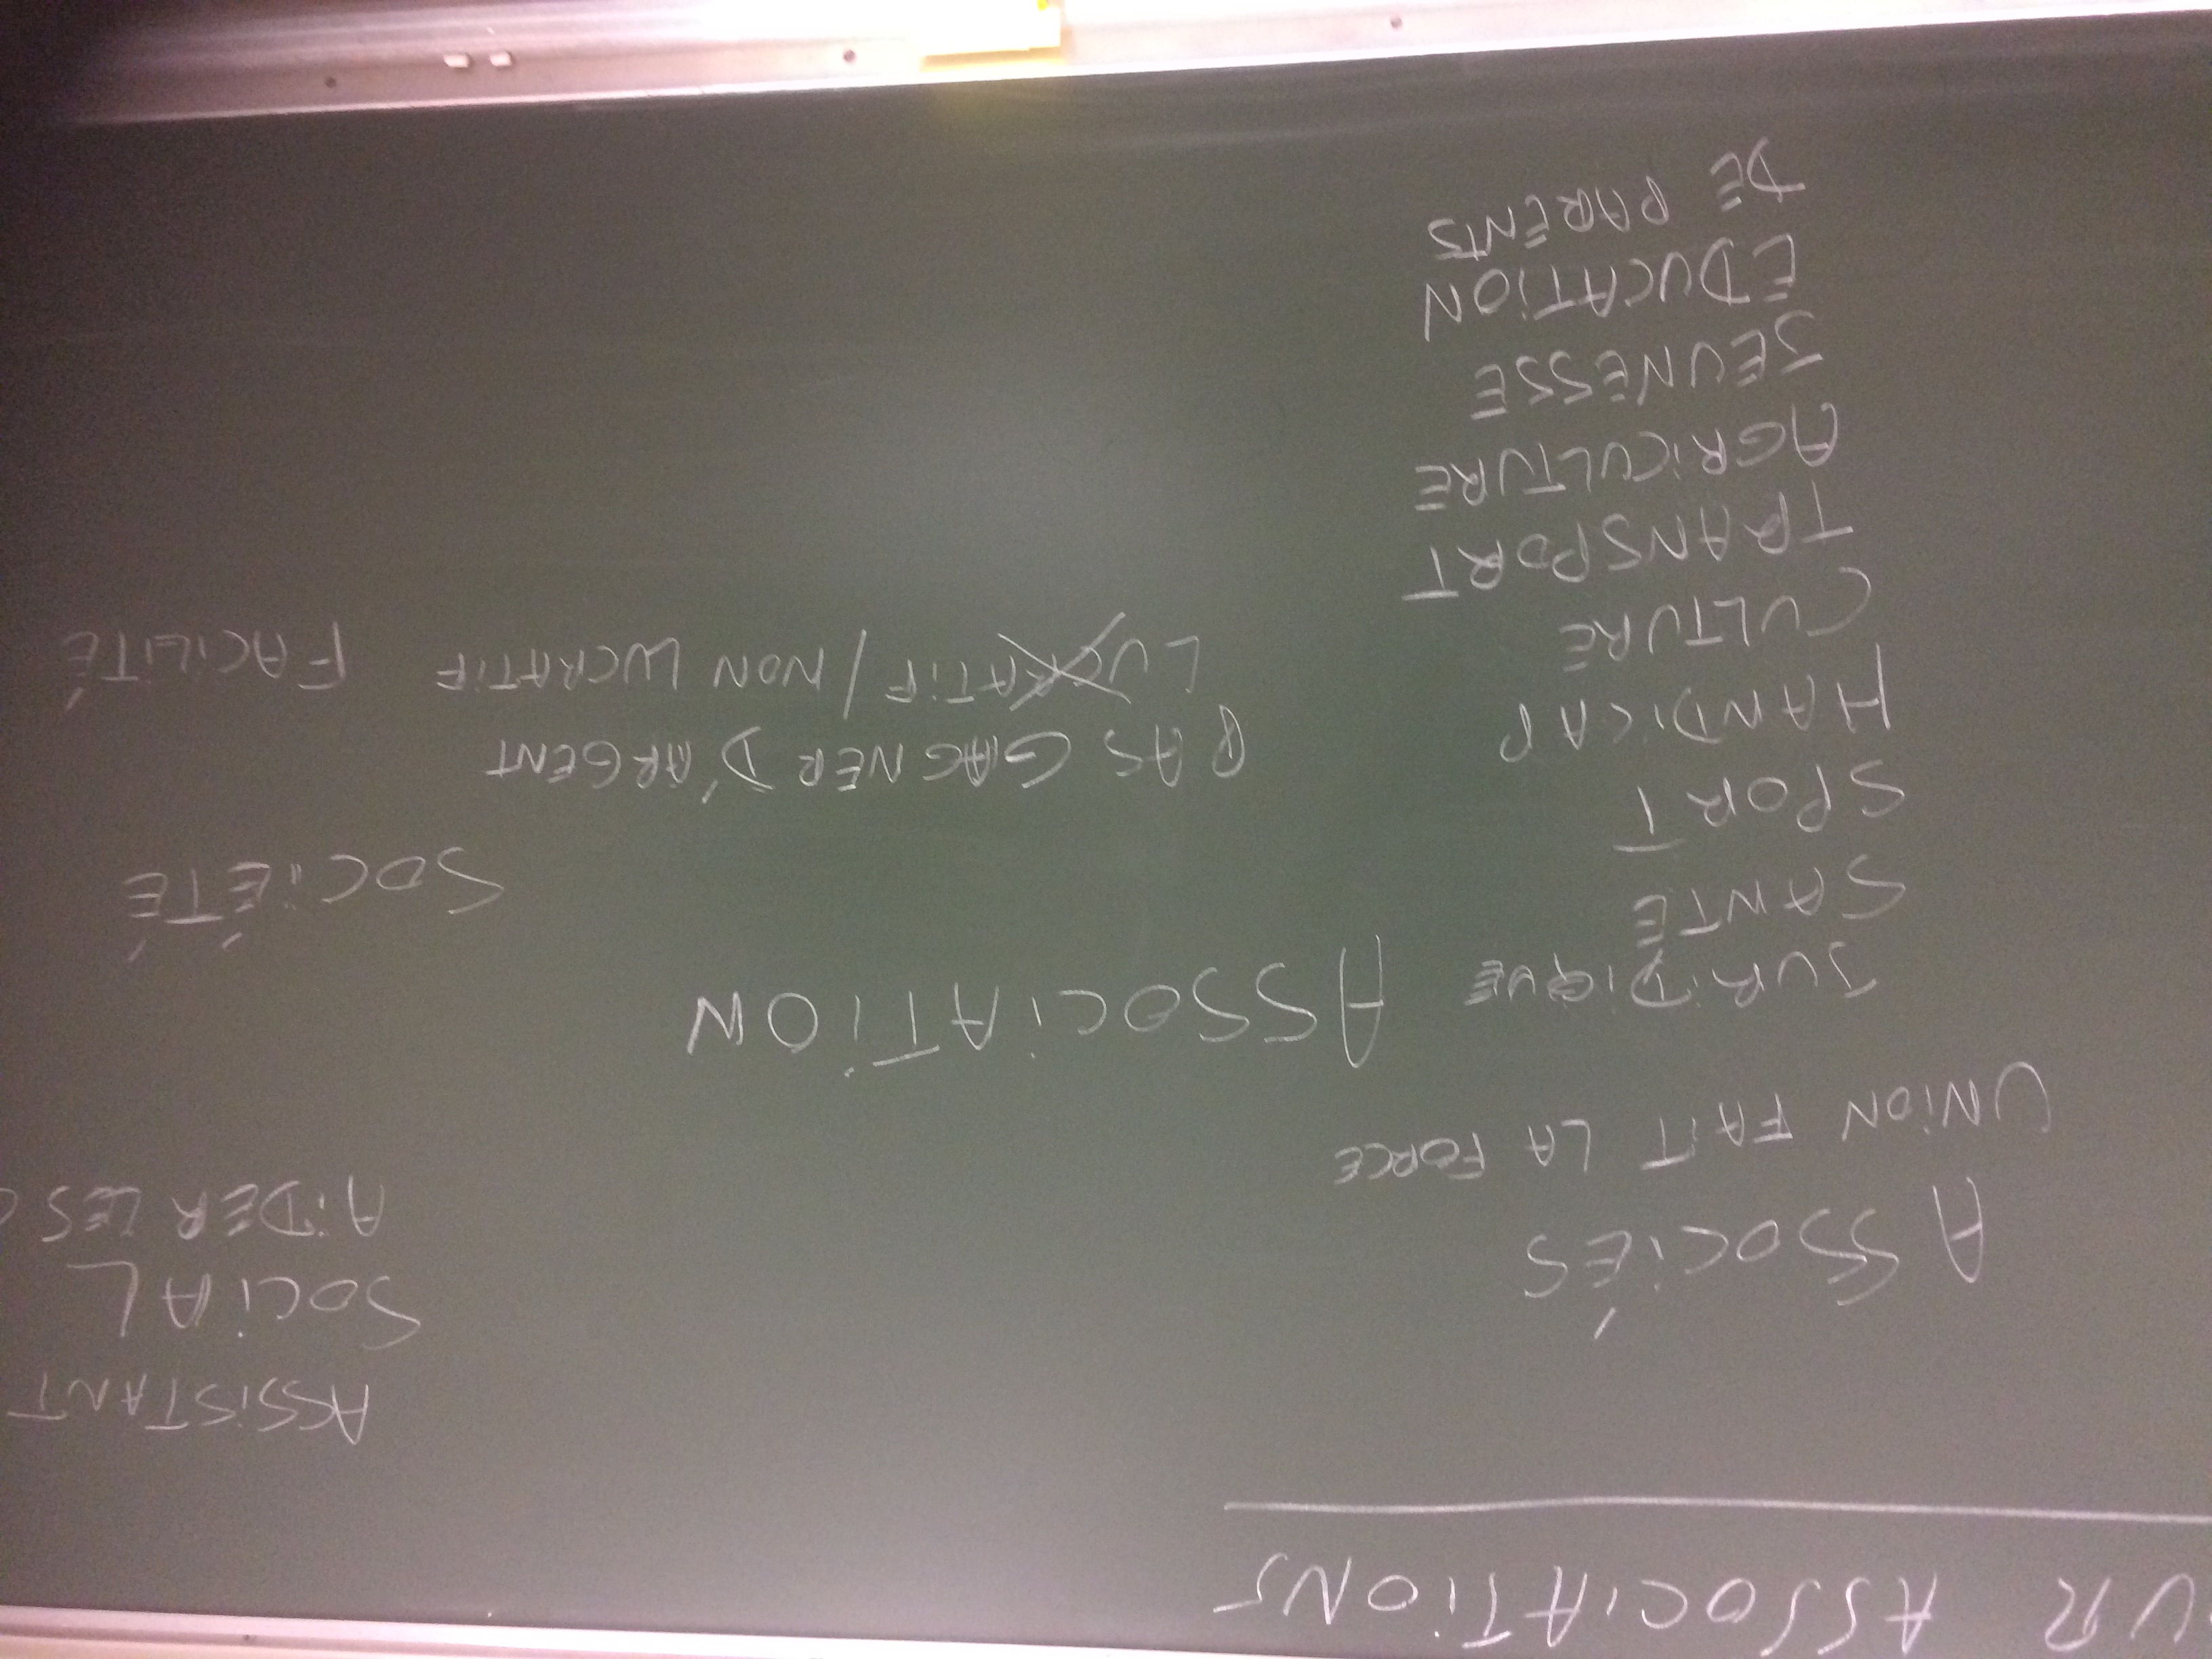 UR ASSOCIATIONS
ASSOCIÉS
UNION FAIT LA FORCE
JURIDIQUE
SANTE
SPORT
HANDICAP
CULTURE
TRANSPORT
AGRICULTURE
JEUNESSE
EDUCATION
DE PARENTS
ASSOCIATION
PAS GAGNER D'ARGENT
LUCRATIF / NON LUCRATIF
ASSISTANT
SOCIAL
AIDER LES
SOCIÉTÉ
FACILITÉ